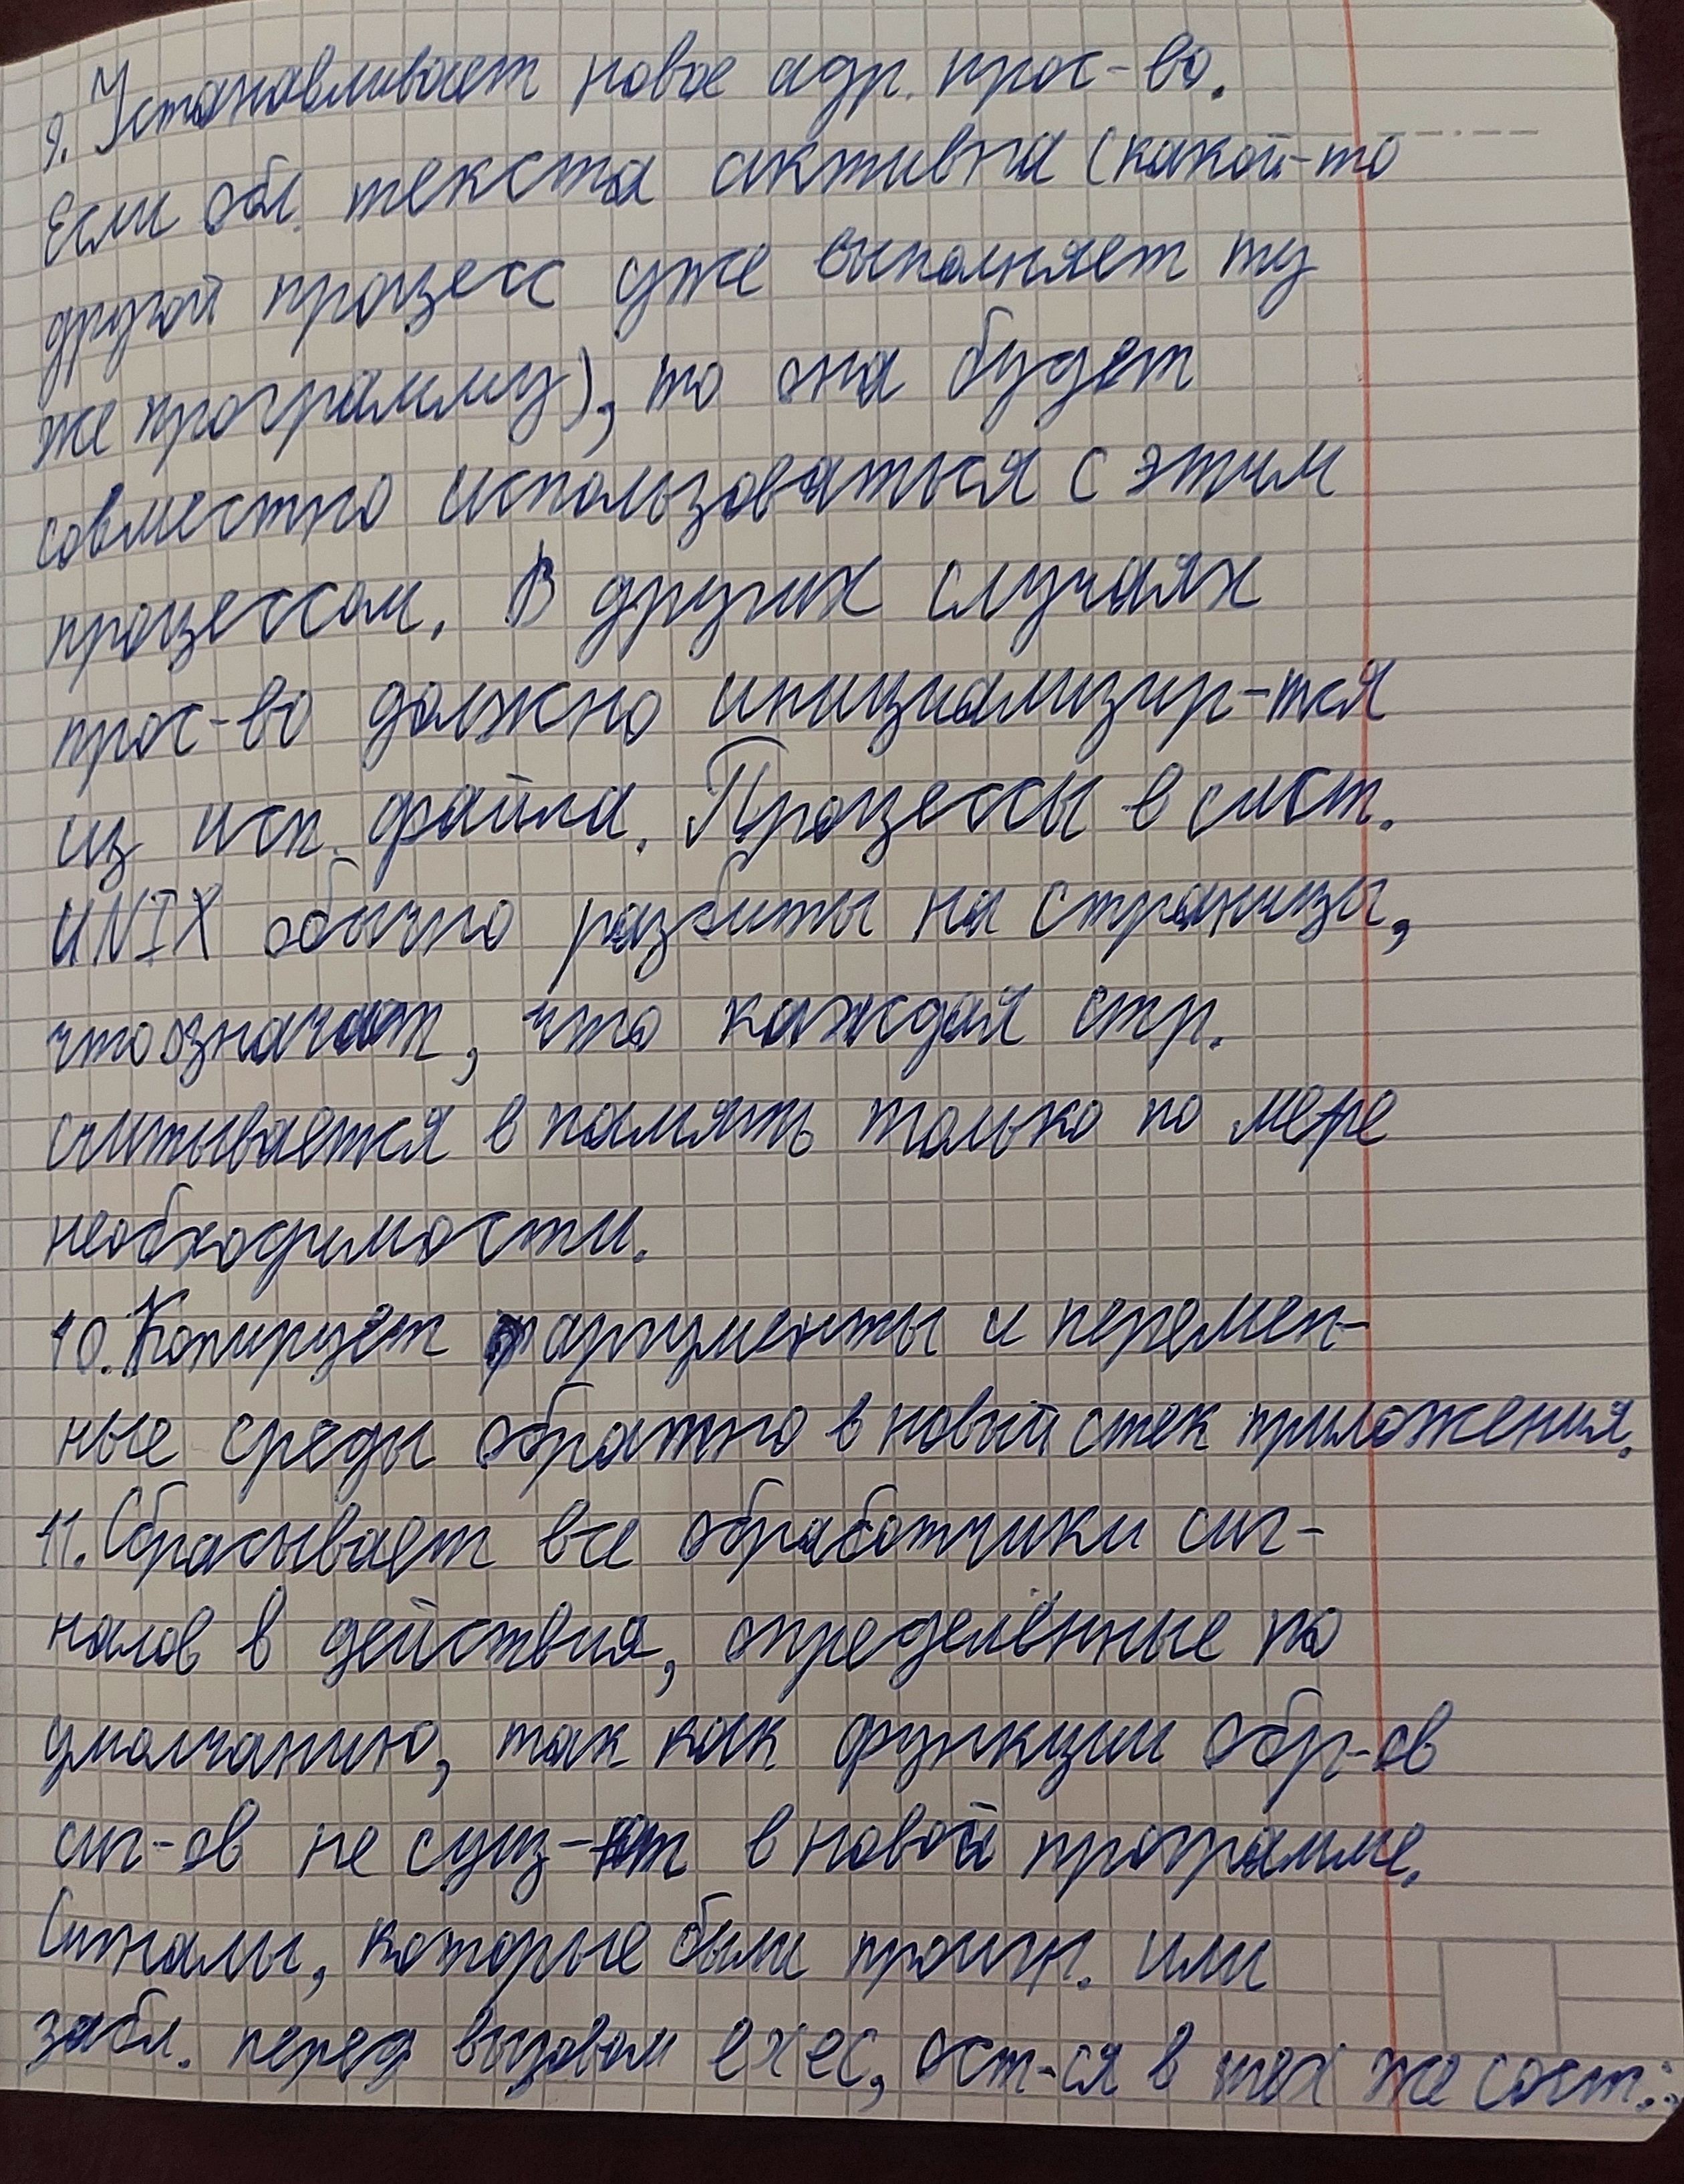 9. Устанавливает новое адр. прос-во.
Если обл. текста активна (какой-то
другой процесс уже выполняет ту
же программу), то она будет
совместно использоваться с этим
процессом. В других случаях
прос-во должно инициализир-тся
из исп. файла. Процессы в сист.
UNIX обычно разбиты на страницы,
что означает, что каждая стр.
считывается в память только по мере
необходимости.
10. Копирует аргументы и перемен-
ные среды обратно в новый стек приложения.
11. Сбрасывает все обработчики сиг-
налов в действия, определённые по
умолчанию, так как функции обр-ов
сиг-ов не сущ-ют в новой программе.
Сигналы, которые были проигн. или
забл. перед вызовом exec, ост-ся в тех же сост.